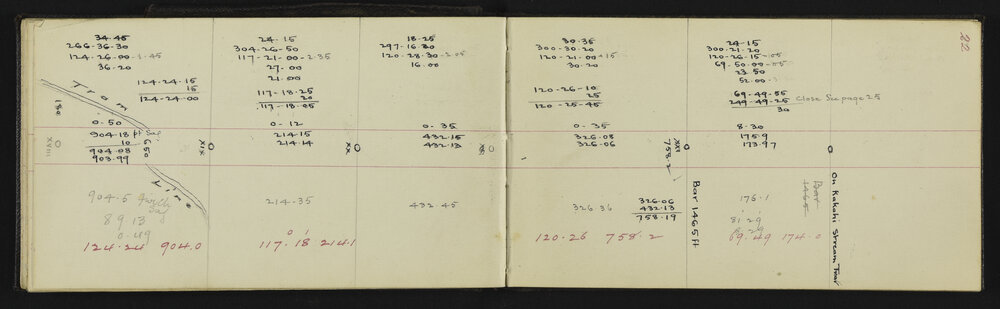 22
34·45
266·36·30
124·26·00 – 1·45
36·20
124·24·15
15
124·24·00
Tram
180
0·50
904·18 ft Sag
10
904·08
903·99
650
XVIII
Line
904·5
89.13
0.49
124·24 904.0
24·15
304·26·50
117·21·00 – 2·35
27·00
21·00
117·18·25
20
117·18·05
0·12
214·15
214·14
XIX
214·35
117·18 214.1
18·25
297·16·80
120·28·30 – 2·05
16·00
0·35
432·15
432·13
XX
432·45
30·35
300·30·20
120·21·00 – 15
30·20
120·26·10
25
120·25·45
0·35
326·08
326·06
326·36
326·06
432·13
758·19
120·26 758·2
XXII
758·2
Bar 1465 ft
24·15
300·21·20
120·26·15 – 05
69·50·00 – 05
23·50
52·00
69·49·55
249·49·25 Close See page 25
30
8·30
175·9
173·97
176·1
81·29
69·49 174·0
Bar
1465
On Kakahi Stream Tram